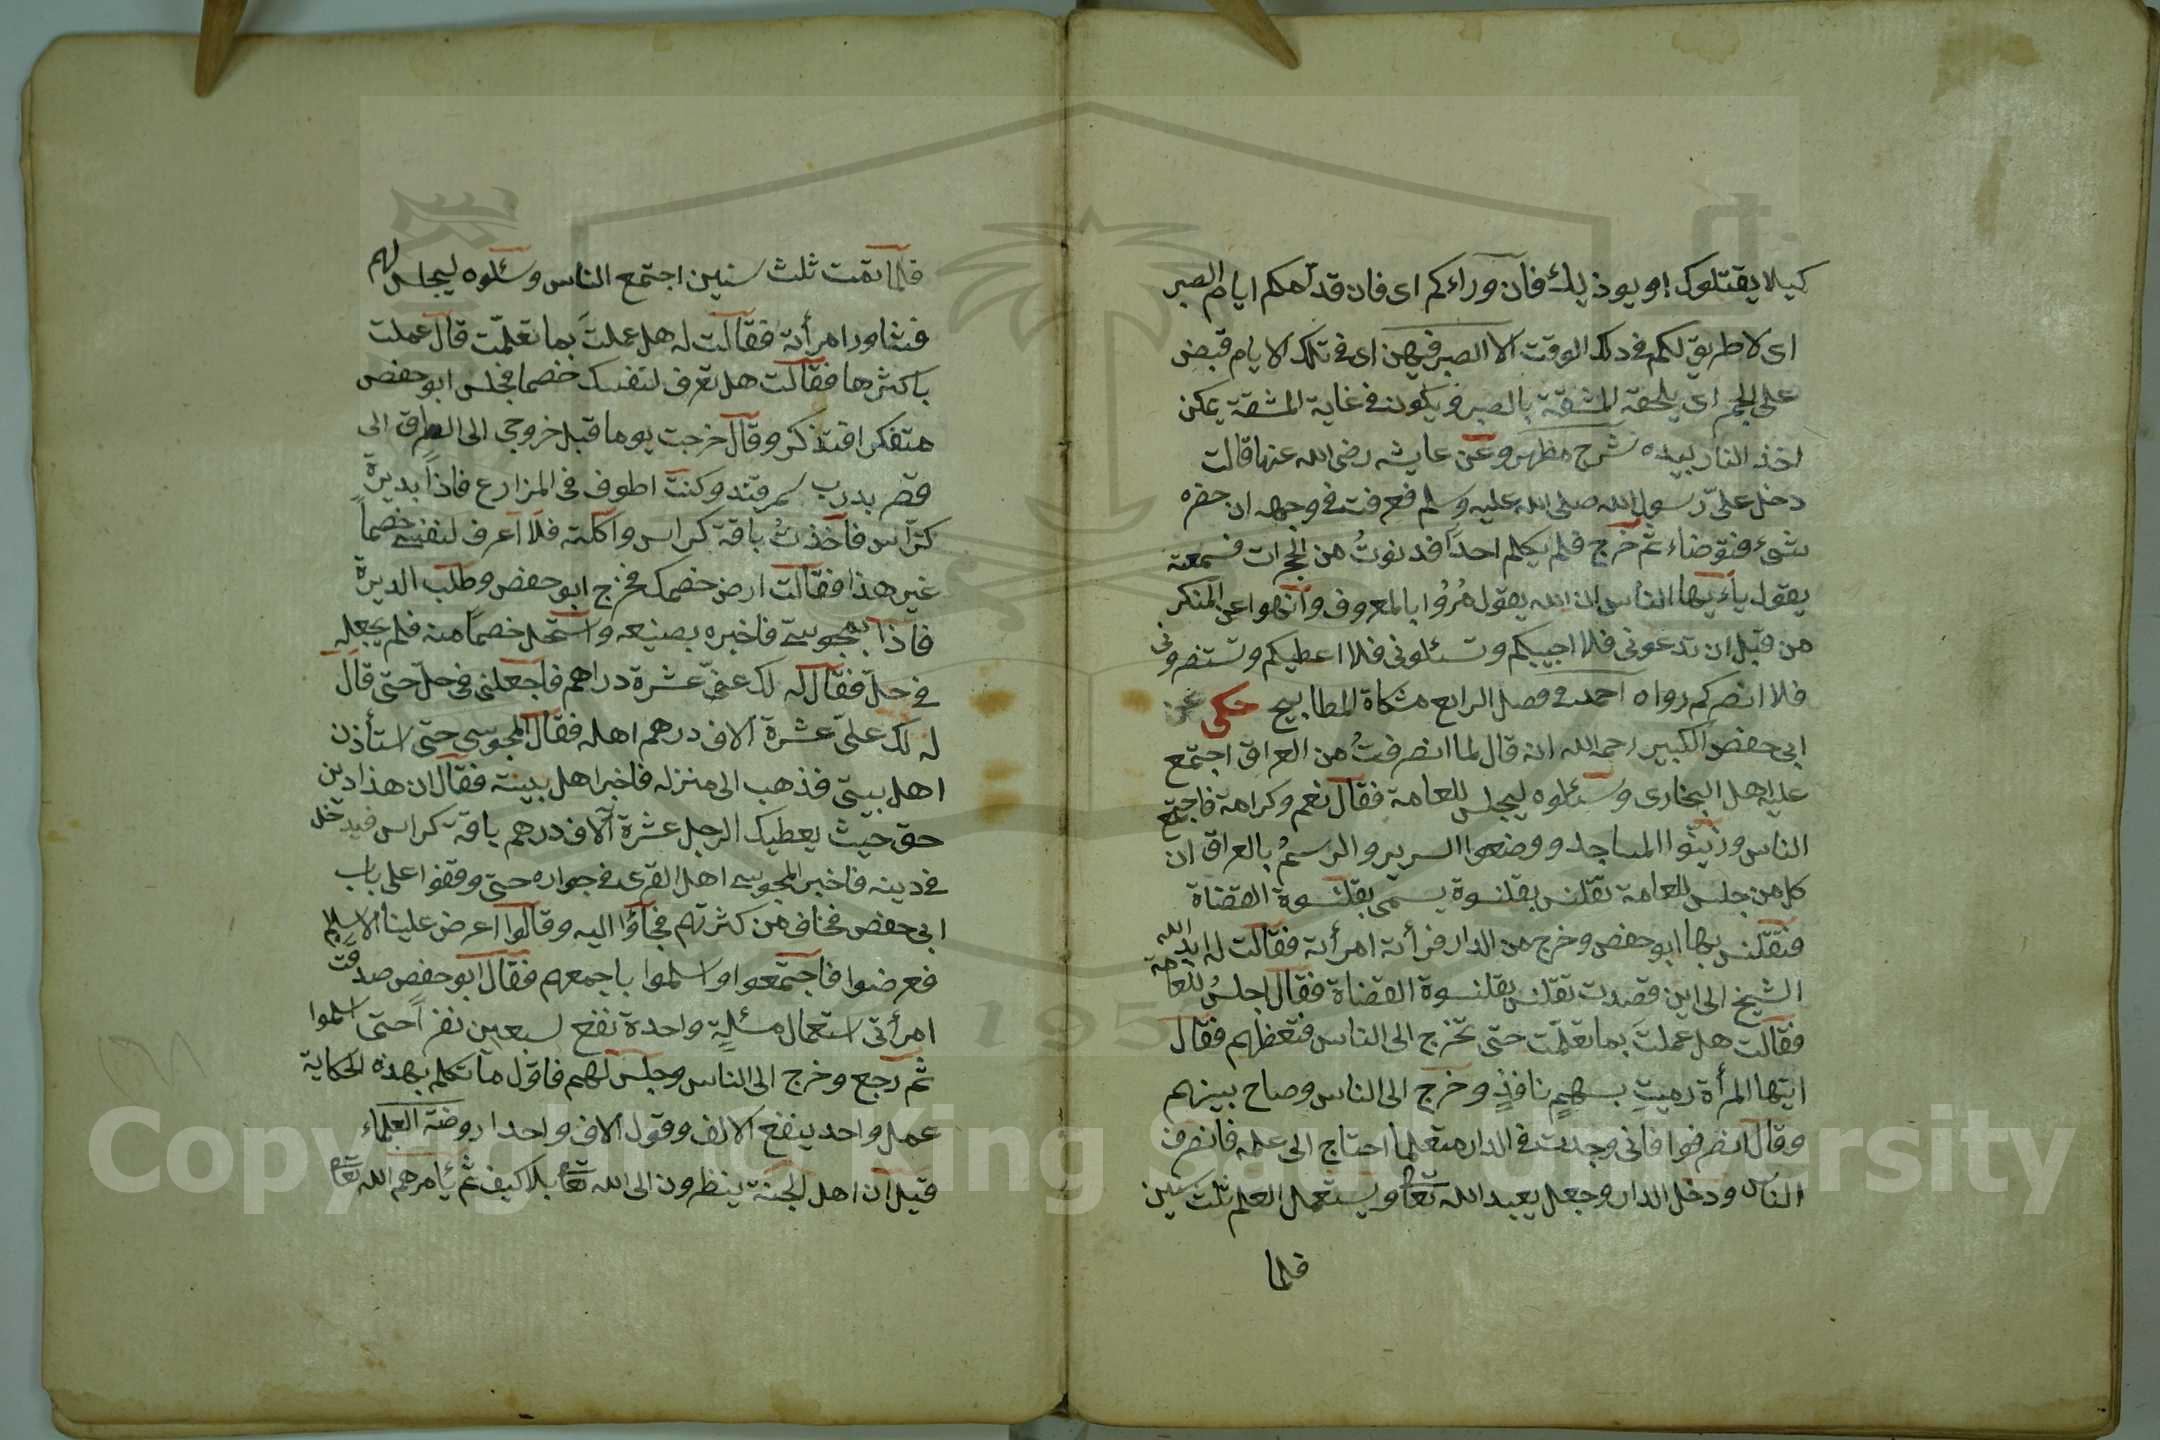 كيلا يقتلوك او يوذيك فان وراءكم اى فان قدامكم ايام الصبر
اى لا طريق لكم فى ذلك الوقت الا الصبر فيهن اى فى تلك الايام قبض
على الجمر اى يلحقه المشقة بالصبر ويكون فى غاية المشقة يمكن
اخذ النار بيده شرح مظهر وعن عايشه رضى الله عنها قالت
دخل علىّ رسول الله صلى الله عليه وسلم فعرفت فى وجهه ان حضره
شىء فتوضاء ثم خرج فلم يكلم احداً فدنوتُ من الحجرات فسمعته
يقول ياءيها الناس ان الله يقول مُرُوا بالمعروف وانهوا عن المنكر
من قبل ان تدعونى فلا اجيبكم وتسئلونى فلا اعطيكم وتستنصرونى
فلا انصركم رواه احمد فى فصل الرابع مشكاة المصابيح حكى عن
ابى حفص الكبير رحمه الله انه قال لما انصرفتُ من العراق اجتمع
عليه اهل البخارى وسئلوه ليجلس للعامة فقال نعم وكرامة فاجتمع
الناس وزينوا المساجد ووضعوا السرير والرسمُ بالعراق ان
كل من جلس للعامة تقلنس بقلنسوة يسمى بقلنسوة القضاة
فتقلنس بها ابو حفص وخرج من الدار فرأته امرأته فقالت له ايد الله
الشيخ الى اين قصدت تقلنس بقلنسوة القضاة فقال اجلسُ للعامة
فقالت هل عملتَ بما تعلّمت حتى تخرج الى الناس فتعظهم فقال
ايتها المرأة رميتِ بسهمٍ نافذٍ وخرج الى الناس وصاح بينهم
وقال انصرفوا فانى وجدت فى الدار متعلما احتاج الى علمه فانصرف
الناس ودخل الدار وجعل يعبد الله تعا ويستعمل العلم ثلث سنين
فلما
فلما تمت ثلث سنين اجتمع الناس وسئلوه ليجلس لهم
فشاور امرأته فقالت له هل عملتَ بما تعلّمت قال عملت
باكثرها فقالت هل تعرف لنفسك خصما فجلس ابو حفص
متفكرا فتذكر وقال خرجت يوما قبل خروجى الى العراق الى
قصر بدرب سمرقند وكنت اطوف فى المزارع فاذاً بديرة
كرّاس فاخذتُ باقة كراس واكلته فلا اعرف لنفسى خصماً
غير هذا فقالت ارض خصمك فخرج ابو حفص وطلب الديرة
فاذا بمجوسىّ فاخبره بصنيعه واستحل خصماً منه فلم يجعله
فى حلّ فقال له لك عنىّ عشرة دراهم فاجعلنى فى حلّ حتى قال
له لك علىّ عشرة الاف درهم اهله فقال المجوسى حتى استأذن
اهل بيتى فذهب الى منزله فاخبر اهل بيته فقال ان هذا دين
حق حيث يعطيك الرجل عشرة آلاف درهم باقة كراس فيدخل
فى دينه فاخبر المجوسى اهل القرى فى جواره حتى وقفوا على باب
ابى حفص فخاف من كثرتهم فجاؤا اليه وقالوا اعرض علينا الاسلام
فعرضوا فاجتمعوا واسلموا باجمعهم فقال ابو حفص صدقت
امرأتى استعمال مسئلةٍ واحدة نفع لسبعين نفراً حتى اسلموا
ثم رجع وخرج الى الناس وجلس لهم فاقول ما تكلم بهذه الحكاية
عمل واحد ينفع الالف وقول الاف واحدا روضة العلماء
قيل ان اهل الجنة ينظرون الى الله تعا بلا كيف ثم يأمرهم الله تعا
1957
Copyright © King Saud University